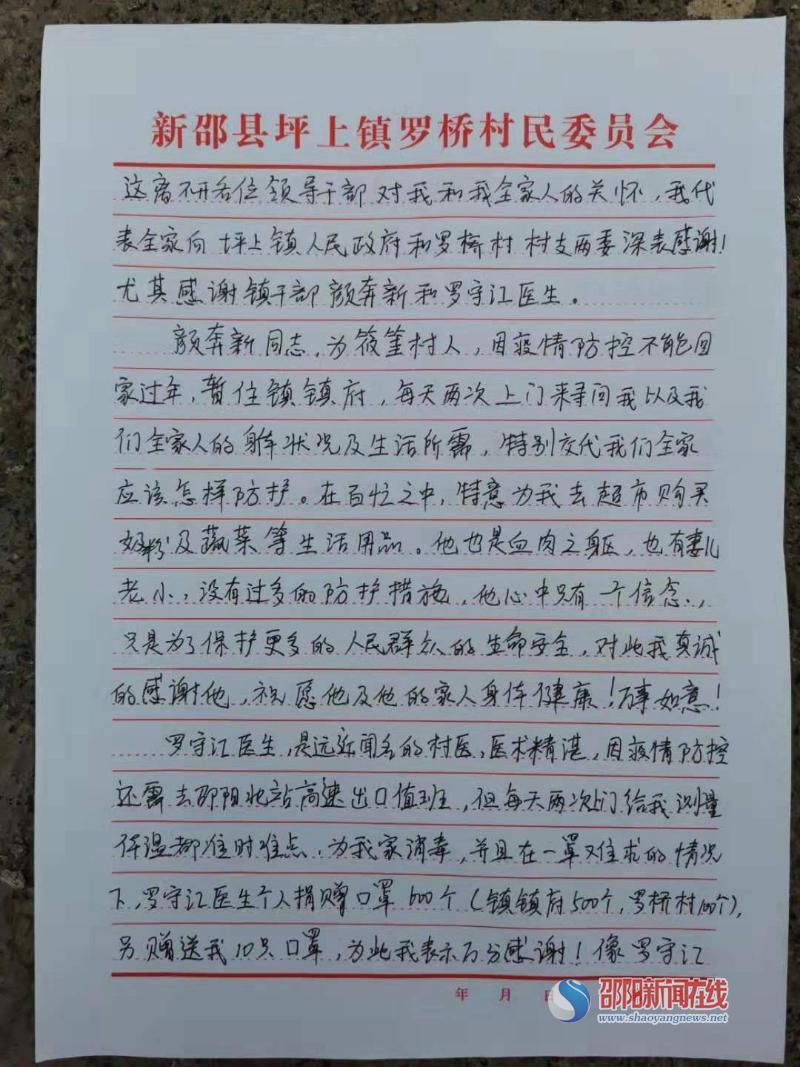 新邵县坪上镇罗桥村民委员会
这离不开各位领导干部对我和我全家人的关怀，我代
表全家向坪上镇人民政府和罗桥村村支两委深表感谢！
尤其感谢镇干部颜奔新和罗守江医生。
颜奔新同志，为筱筻村人，因疫情防控不能回
家过年，暂住镇镇府，每天两次上门来寻问我以及我
们全家人的身体状况及生活所需，特别交代我们全家
应该怎样防护。在百忙之中，特意为我去超市购买
奶粉及蔬菜等生活用品。他也是血肉之躯，也有妻儿
老小，没有过多的防护措施，他心中只有一个信念，
只是为了保护更多的人民群众的生命安全，对此我真诚
的感谢他，祝愿他及他的家人身体健康！万事如意！
罗守江医生，是远近闻名的村医，医术精湛，因疫情防控
还需去邵阳北站高速出口值班，但每天两次上门给我测量
体温都准时准点，为我家消毒，并且在一罩难求的情况
下，罗守江医生个人捐赠口罩600个（镇镇府500个，罗桥村100个），
另赠送我10只口罩，为此我表示万分感谢！像罗守江
年 月 日
邵阳新闻在线
www.shaoyangnews.net